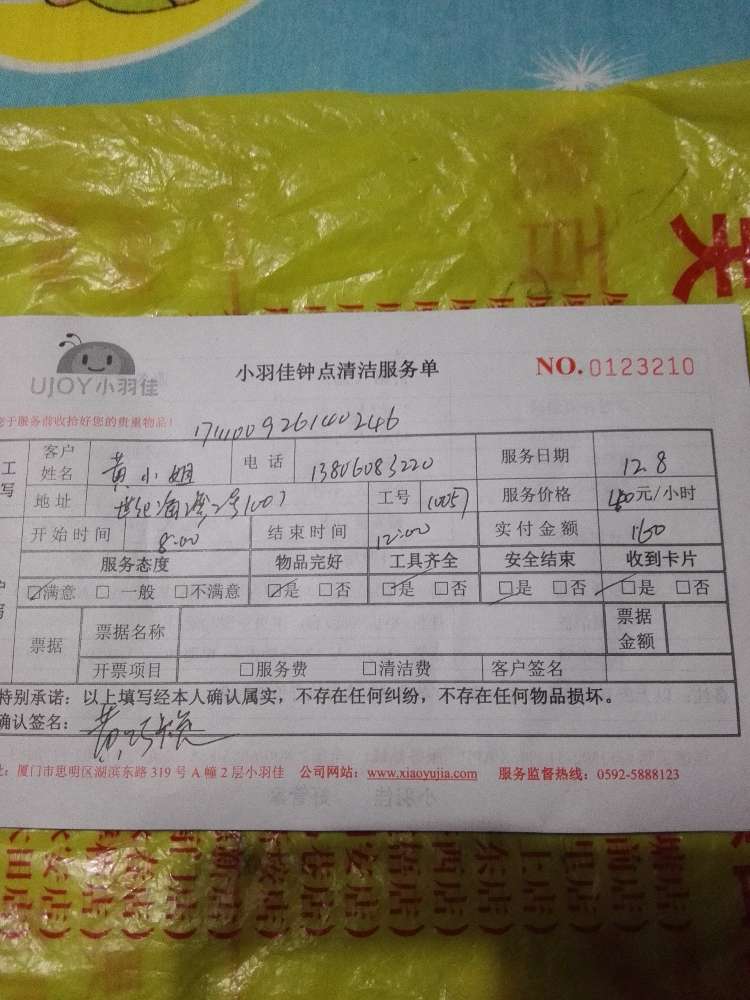 UJOY小羽佳
小羽佳钟点清洁服务单
NO.0123210
于服务前收拾好您的贵重物品!
客户姓名 黄小姐 电话 13806083220 服务日期 12.8
地址 2号1007 工号 10057 服务价格 40元/小时
开始时间 8:00 结束时间 12:00 实付金额 160
服务态度 物品完好 工具齐全 安全结束 收到卡片
☑满意 □一般 □不满意 ☑是 □否 ☑是 □否 ☑是 □否 ☑是 □否
票据 票据名称 票据金额
开票项目 □服务费 □清洁费 客户签名
特别承诺：以上填写经本人确认属实，不存在任何纠纷，不存在任何物品损坏。
确认签名：
址：厦门市思明区湖滨东路 319 号 A 幢 2 层小羽佳 公司网站：www.xiaoyujia.com 服务监督热线：0592-5888123